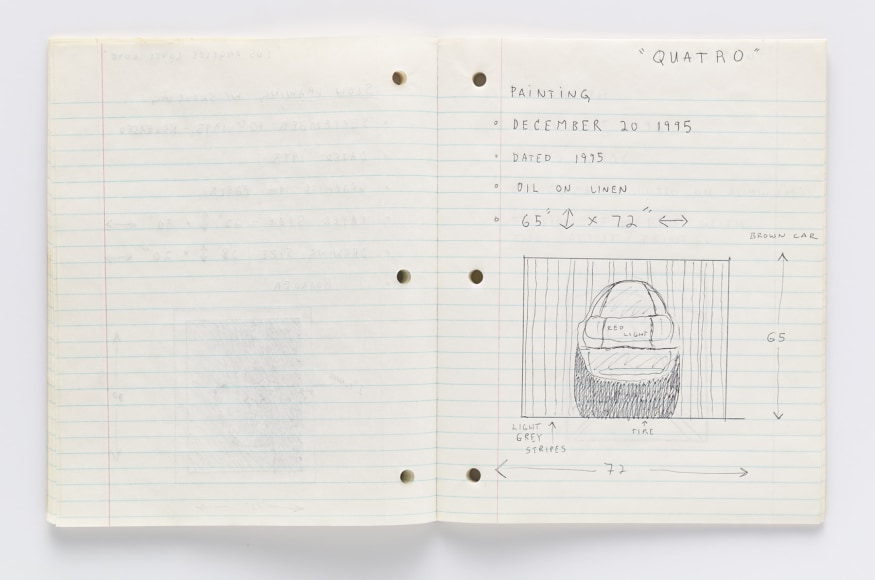 "QUATRO"
PAINTING
° DECEMBER 20 1995
° DATED 1995
° OIL ON LINEN
° 65" ↕ × 72" ↔
BROWN CAR
RED
LIGHT
65
LIGHT ↑
GREY
STRIPES
↑
TIRE
72